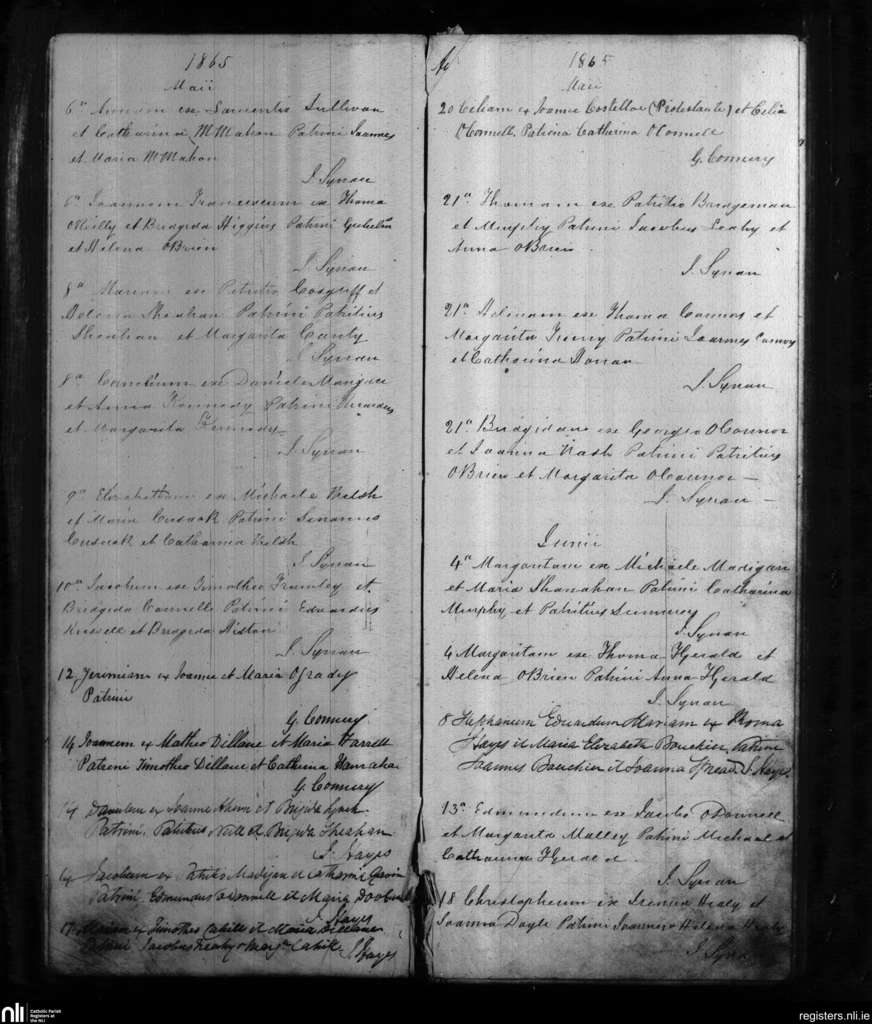 1865
Maii
6a Annam ex Laurentio Sullivan
et Catharina McMahon Patrini Joannes
et Maria McMahon
J. Synan
6a Joannem Franciscum ex Thoma
OReilly et Bridgeda Higgins Patrini
et Helena OBrien
J. Synan
8a Mariam ex Patritio Cosgriff et
Helena Sheahan Patrini Patritius
Sheahan et Margarita Canty
J. Synan
8a ex Daniele Mangan
et Anna Kennedy Patrini
et Margarita Kennedy
J. Synan
9a Elizabetham ex Michaele Welsh
et Maria Cusack Patrini
Cusack et Catharina Welsh
J. Synan
10a Jacobum ex Timotheo et
Bridgeda Connell Patrini Edvardus
et Bridgeda
J. Synan
12 Jerimiam ex Joanne et Maria OGrady
Patrini
G. Connery
14 Joannem ex Matheo Dillane et Maria Farrell
Patrini Timotheo Dillane et Catherina Hanrahan
G. Connery
14 ex Joanne Ahern et Brigida
Patrini Patritius et Brigida Sheahan
J. Hayes
14 Jacobum ex Madigan et
Patrini Edmundus et Maria
J. Hayes
17 Mariam ex Timotheo Cahill et Maria Dillane
Patrini Jacobus et Cahill
J. Hayes
1865
Maii
20 ex Joanne Costelloe (Protestante) et Celia
OConnell. Patrina Catherina OConnell
G. Connery
21a Thomam ex Patritio Bridgeman
et Murphy Patrini Jacobus Leahy et
Anna OBrien
J. Synan
21a Helenam ex Thoma Connors et
Margarita Patrini Joannes
et Catharina
J. Synan
21a Bridgidam ex Georgio OConnor
et Joanna Nash Patrini Patritius
OBrien et Margarita OConnor —
J. Synan —
Junii
4a Margaritam ex Michaele Madigan
et Maria Shanahan Patrini Catharina
Murphy et Patritius
J. Synan
4 Margaritam ex Thoma Hgerald et
Helena OBrien Patrini Anna Hgerald
J. Synan
8 Stephanum Edmundum Mariam ex Thoma
Hayes et Maria Elizabeth Bouchier Patrini
Joannes Bouchier et Joanna J. Hayes
13a Edmundum ex Jacobo ODonnell
et Margarita Malley Patrini Michael et
Catharina Hgerald
J. Synan
18 Christopherum ex Healy et
Joanna Doyle Patrini Joannes et Helena Healy
J. Synan
nli
Catholic Parish
Registers at
the NLI
registers.nli.ie